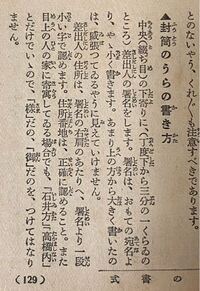 とのないやう、くれ〴〵も注意すべきであります。
▲封筒のうらの書き方
中央の繼ぎ目の下寄りに(丁度下から三分の一くらゐの
所へ)差出人の署名をします。署名は、おもての宛名よ
り、やゝ小さく書きます。あまり上の方から大きく書いたの
は、威張つてゐるやうに見えていけません。
差出人の住所は、署名の右肩のあたりへ、署名より一段
小い字で認めます。住所番地は、正確に認めること。また
目上の人の家に寄寓してゐる場合でも、「石井方」「高橋内」
とだけでいゝので、「樣」だの、「御」だのを、つけてはなり
ません。
式書の
(129)